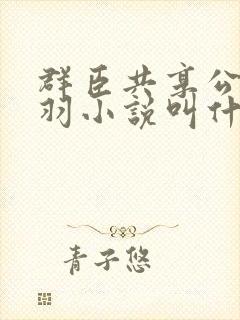 群臣共享公
羽小说叫什
青子悠